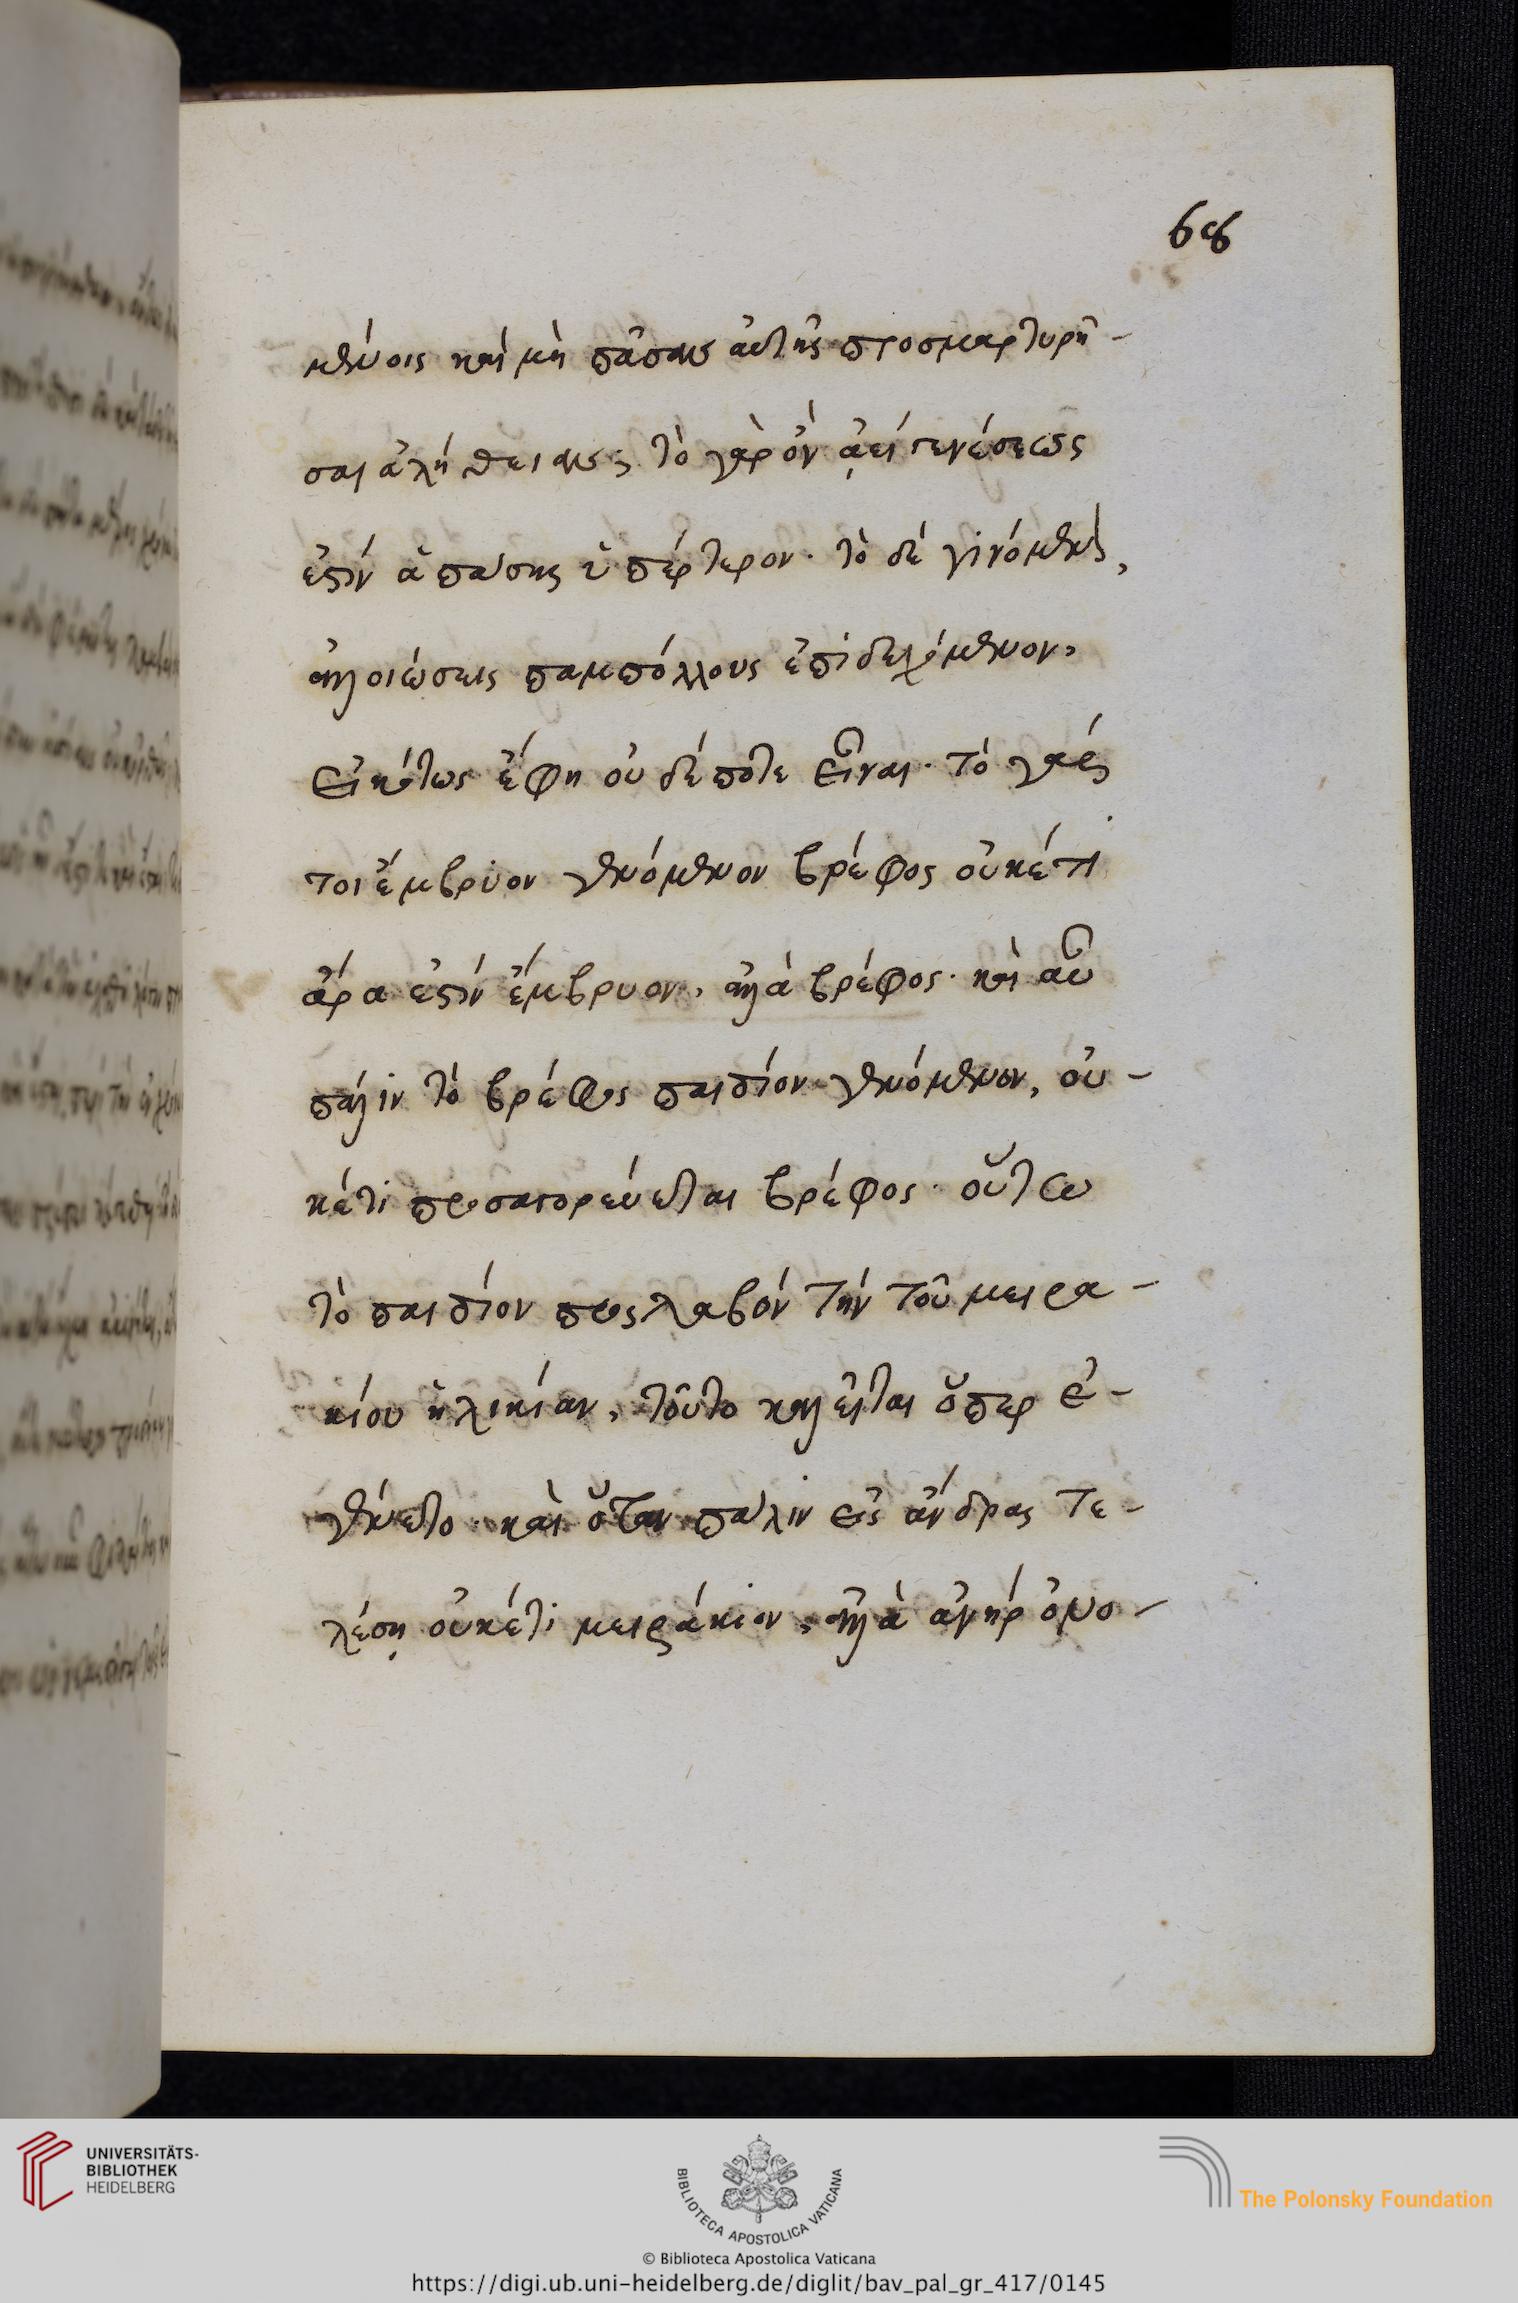 68
μένοις καὶ μὴ πᾶσαις αὐτῆς προσμαρτυρῆ-
σαι ἀλήθειαις; τὸ γὰρ ὂν ἀεὶ γενέσεως
ἐστὶν ἁπάσης ὑπέρτερον· τὸ δὲ γινόμενον,
ἀλλοιώσεις παμπόλλους ἐπιδεχόμενον,
εἰκότως ἔφη οὐδέποτε εἶναι· τὸ γάρ
τοι ἔμβρυον γενόμενον βρέφος οὐκέτι
ἄρα ἐστὶν ἔμβρυον, ἀλλὰ βρέφος· καὶ αὖ
πάλιν τὸ βρέφος παιδίον γενόμενον, οὐ-
κέτι προσαγορεύεται βρέφος· οὕτω
τὸ παιδίον προσλαβὸν τὴν τοῦ μειρα-
κίου ἡλικίαν, τοῦτο καλεῖται ὅπερ ἐ-
γένετο· καὶ ὅταν πάλιν εἰς ἄνδρας τε-
λέσῃ οὐκέτι μειράκιον, ἀλλὰ ἀνὴρ ὀμο-
UNIVERSITÄTS-
BIBLIOTHEK
HEIDELBERG
BIBLIOTECA APOSTOLICA VATICANA
The Polonsky Foundation
© Biblioteca Apostolica Vaticana
https://digi.ub.uni-heidelberg.de/diglit/bav_pal_gr_417/0145